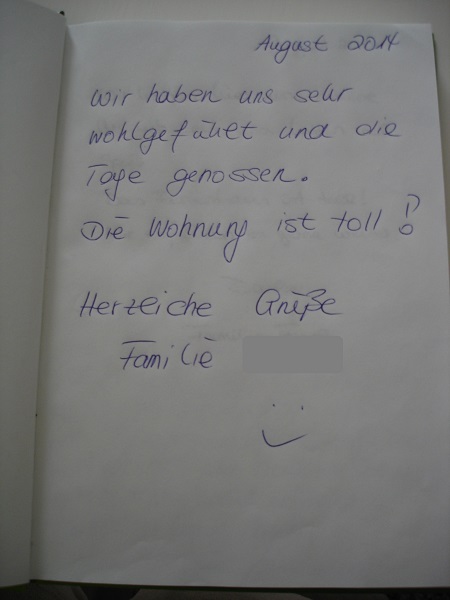 August 2014
Wir haben uns sehr
wohlgefühlt und die
Tage genossen.
Die Wohnung ist toll!
Herzliche Grüße
Familie